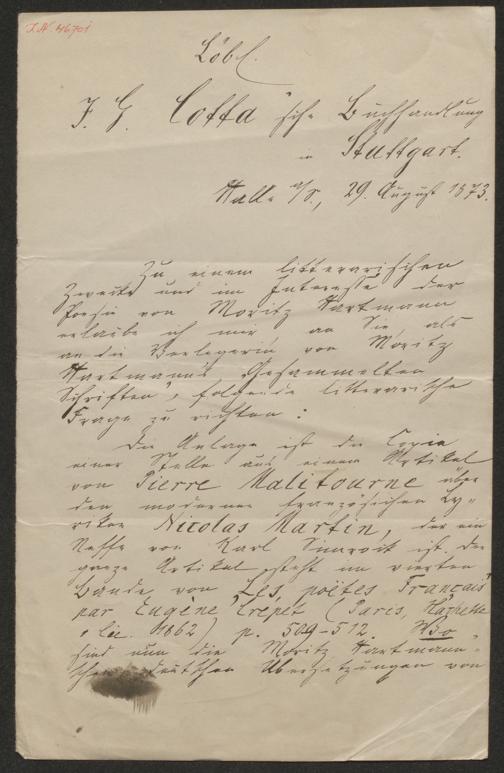 J.N. 46701
Löbl.
J. G. Cotta'sche Buchhandlung
in Stuttgart.
Halle a/S., 29. August 1873.
Zu einem litterarischen
Zwecke und im Interesse der
Poesie von Moritz Hartmann
erlaube ich mir, an Sie, als
an die Verlegerin von "Moritz
Hartmann's Gesammelten
Schriften", folgende litterarische
Frage zu richten:
Die Anlage ist die Copie
einer Stelle aus einem Artikel
von Pierre Malitourne über
den modernen französischen Ly-
riker Nicolas Martin, der ein
Neffe von Karl Simrock ist, der
ganze Artikel steht im vierten
Bande von "Les poëtes Français
par Eugène Crépet (Paris, Hachette
& Cie. 1862) p. 509-512. Wo
sind nun die Moritz Hartmann'
schen deutschen Übersetzungen von